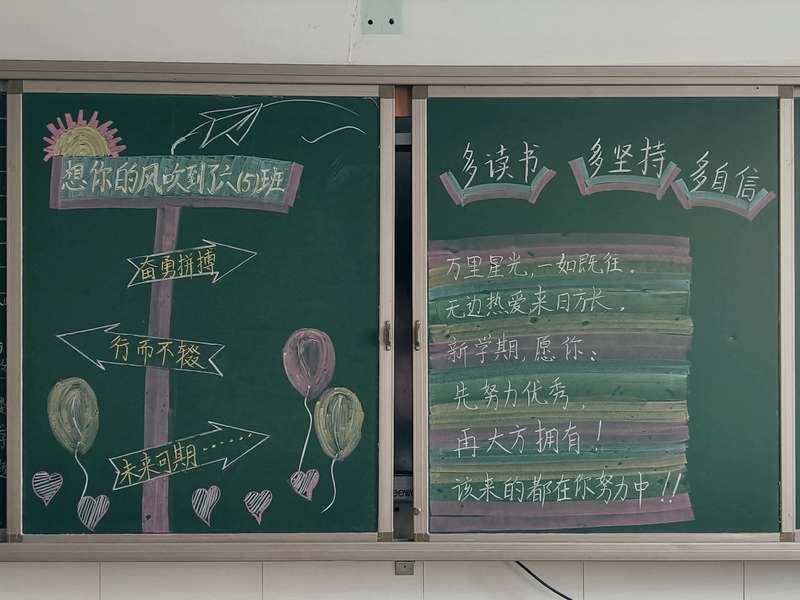 想你的风吹到了六(5)班
奋勇拼搏
行而不辍
未来可期……
多读书
多坚持
多自信
万里星光,一如既往。
无边热爱来日方长。
新学期,愿你:
先努力优秀,
再大方拥有!
该来的都在你努力中!!